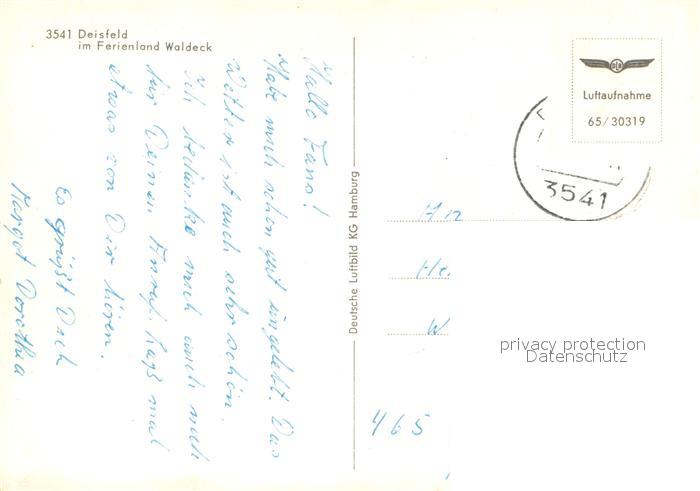 3541 Deisfeld
im Ferienland Waldeck
Hallo Hans!
Habe mich schon gut eingelebt. Das
Wetter ist auch sehr schön.
Ich bedanke mich auch noch
für Deinen Anruf. Lass mal
etwas von Dir hören.
Es grüßt Dich
Margot Dorothea
Deutsche Luftbild KG Hamburg
Luftaufnahme
65/30319
3541
An
He
W
465
privacy protection
Datenschutz